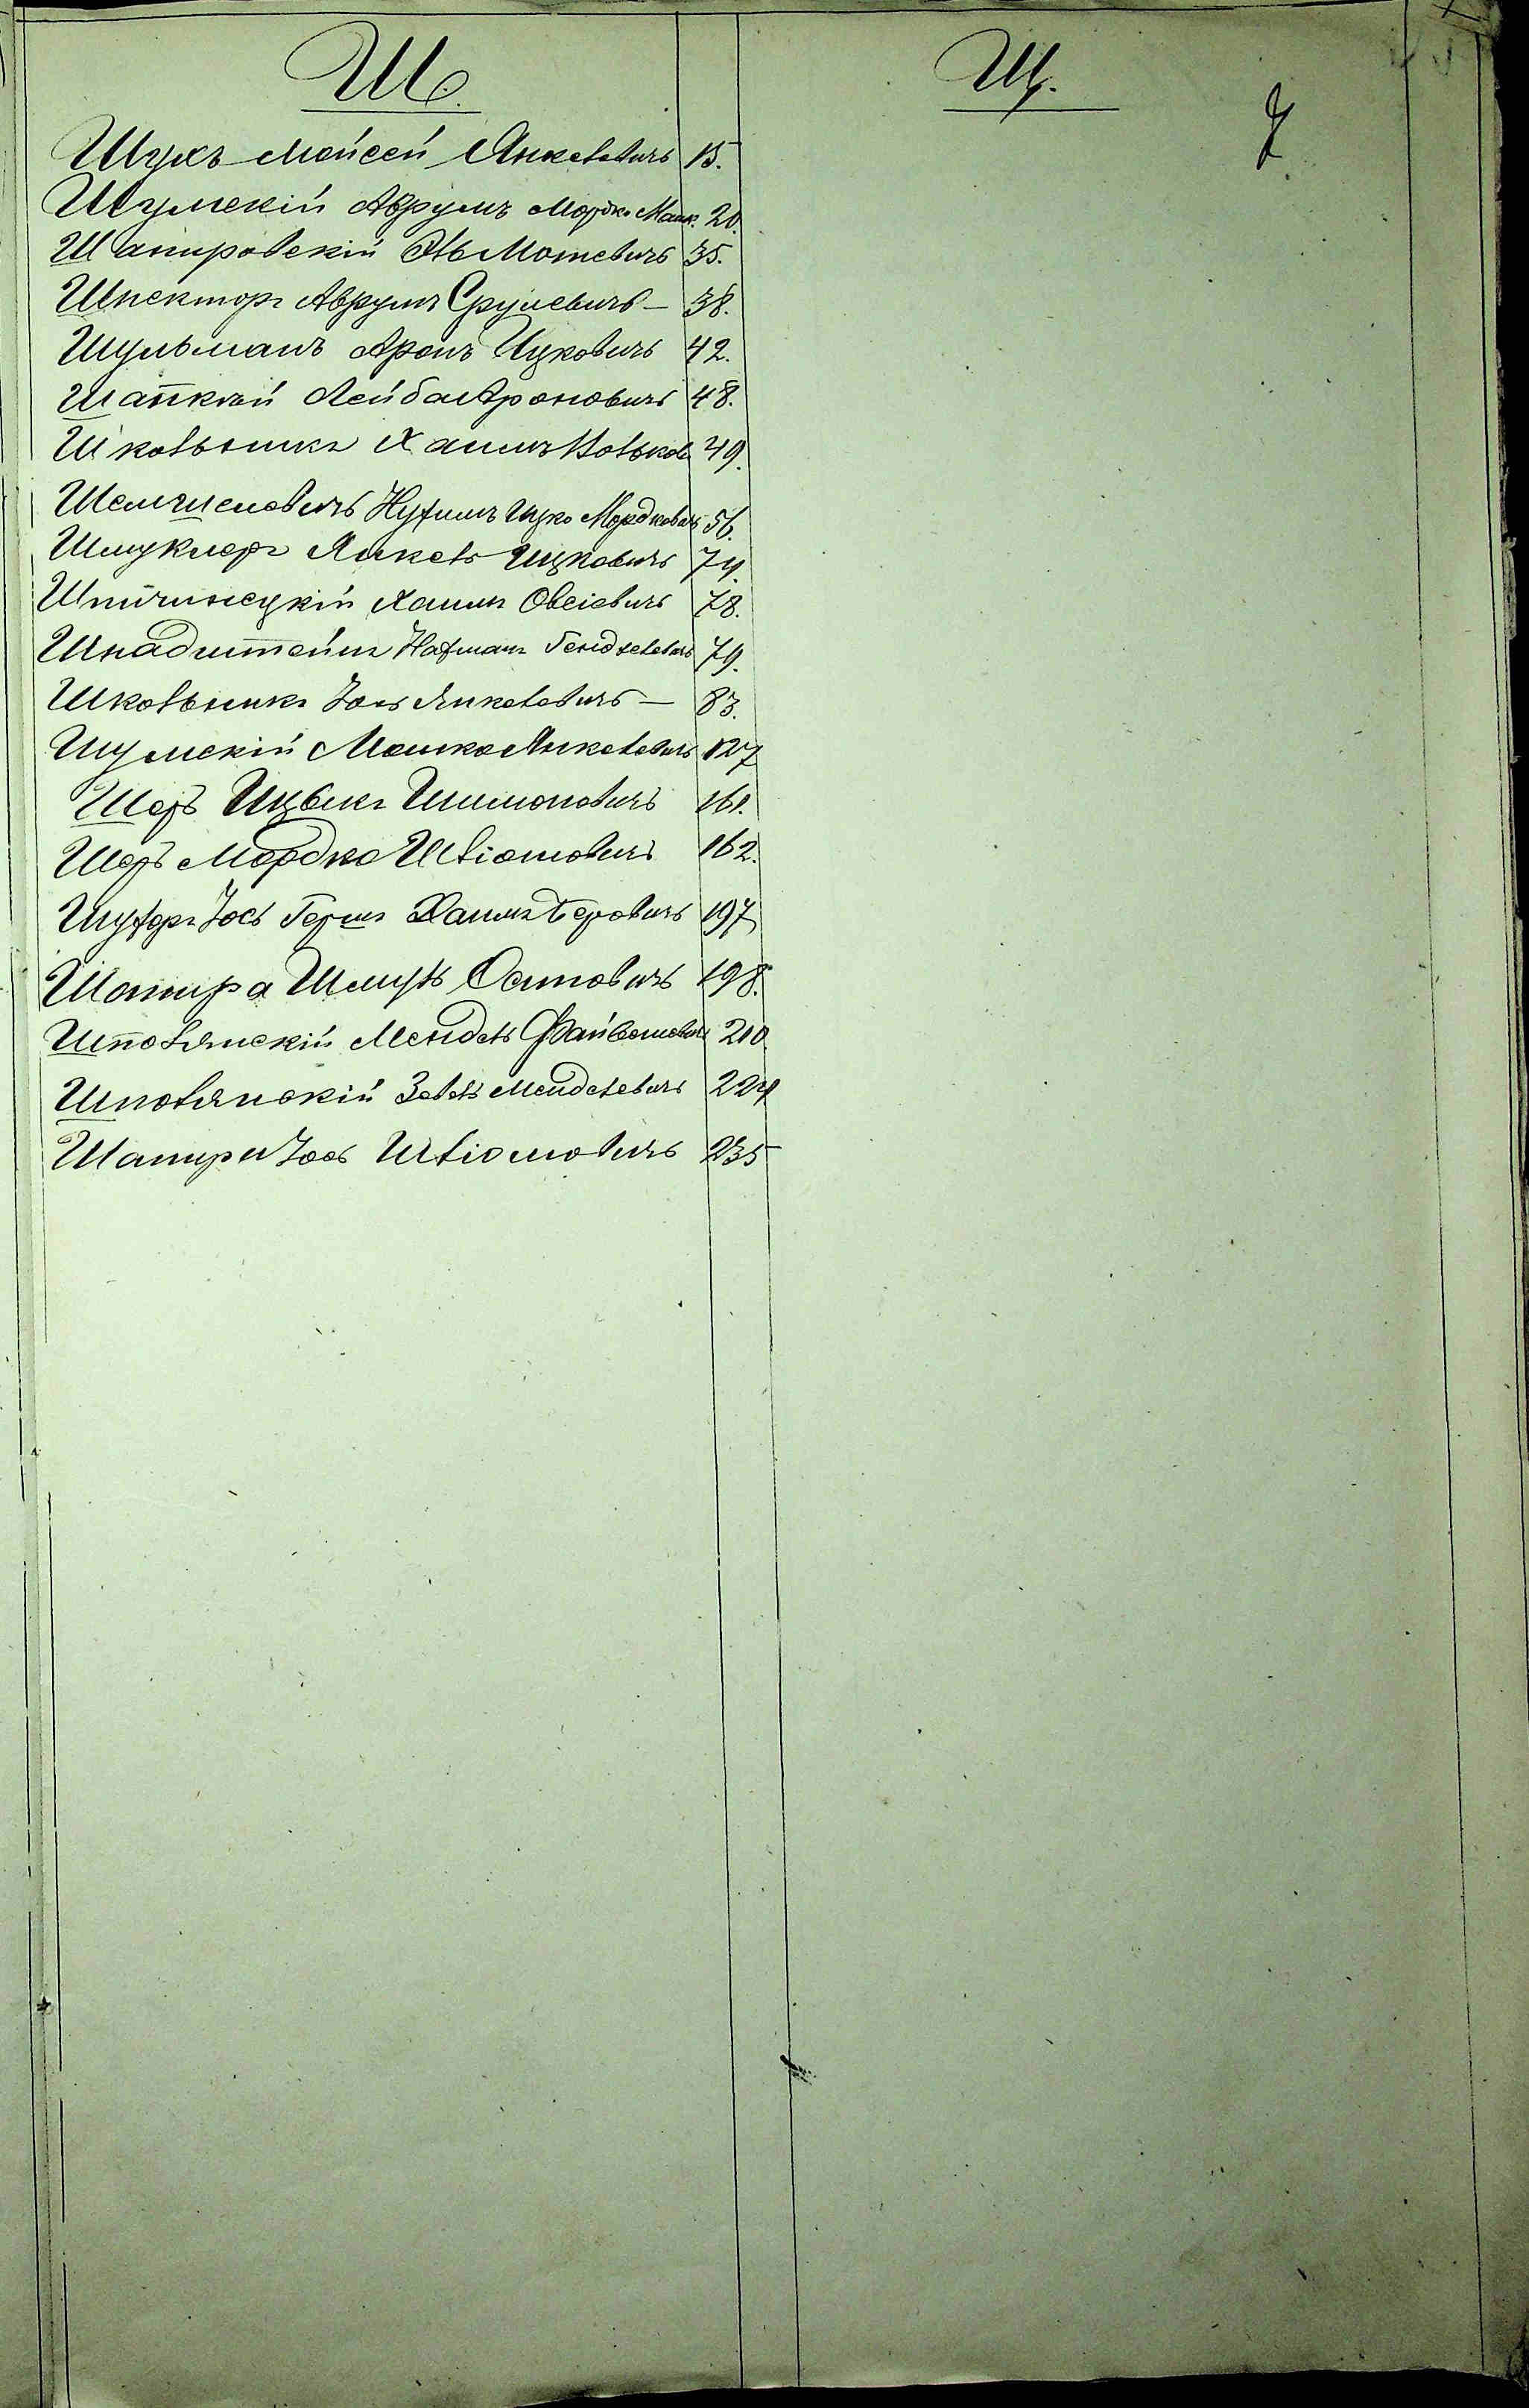 Ш.
Шухъ Мойсей Янкелевичъ 15.
Шумскій Аврумъ Мордко Манк. 20.
Шапировскій Эль Мошевичъ 35.
Шпекторъ Аврумъ Срулевичъ — 38.
Шульманъ Аронъ Ицковичъ 42.
Лейба Ароновичъ 48.
Школьникъ Хаимъ Вольков 49.
Нухимъ Ицко Мордковичъ 56.
Шмуклеръ Янкель Ицковичъ 74.
Шпичинецкій Хаимъ Овсіевичъ 78.
Шнадштейнъ Нахманъ Гендзелевичъ 79.
Школьникъ Іось Янкелевичъ — 83.
Шумскій Мошко Янкелевичъ 127
Шеръ Ицыкъ Шимоновичъ 161.
Шеръ Мордко Шліомовичъ 162.
Шуферъ Іось Гершъ Хаимъ Беровичъ 197
Шапира Шмуль Осиповичъ 198.
Шполянскій Мендель Файвошевичъ 210.
Шполянскій Зевель Менделевичъ 224
Шапира Іось Шліомовичъ 235
Щ.